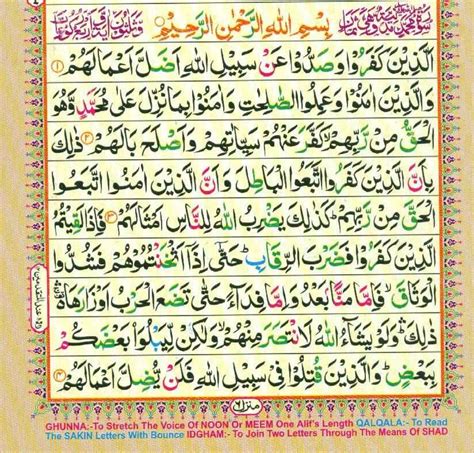 بِسْمِ اللهِ الرَّحْمٰنِ الرَّحِيْمِ
اَلَّذِيْنَ كَفَرُوْا وَصَدُّوْا عَنْ سَبِيْلِ اللهِ اَضَلَّ اَعْمَالَهُمْ ۝۱
وَالَّذِيْنَ اٰمَنُوْا وَعَمِلُوا الصّٰلِحٰتِ وَاٰمَنُوْا بِمَا نُزِّلَ عَلٰى مُحَمَّدٍ وَّهُوَ
الْحَقُّ مِنْ رَّبِّهِمْ ۙ كَفَّرَ عَنْهُمْ سَيِّاٰتِهِمْ وَاَصْلَحَ بَالَهُمْ ۝۲ ذٰلِكَ
بِاَنَّ الَّذِيْنَ كَفَرُوا اتَّبَعُوا الْبَاطِلَ وَاَنَّ الَّذِيْنَ اٰمَنُوا اتَّبَعُوا
الْحَقَّ مِنْ رَّبِّهِمْ ؕ كَذٰلِكَ يَضْرِبُ اللهُ لِلنَّاسِ اَمْثَالَهُمْ ۝۳ فَاِذَا لَقِيْتُمُ
الَّذِيْنَ كَفَرُوْا فَضَرْبَ الرِّقَابِ ؕ حَتّٰۤى اِذَاۤ اَثْخَنْتُمُوْهُمْ فَشُدُّوا
الْوَثَاقَ ۙ فَاِمَّا مَنًّاۢ بَعْدُ وَاِمَّا فِدَآءً حَتّٰى تَضَعَ الْحَرْبُ اَوْزَارَهَا
ذٰلِكَ ۛؕ وَلَوْ يَشَآءُ اللهُ لَانْتَصَرَ مِنْهُمْ وَلٰكِنْ لِّيَبْلُوَا۟ بَعْضَكُمْ
بِبَعْضٍ ؕ وَالَّذِيْنَ قُتِلُوْا فِيْ سَبِيْلِ اللهِ فَلَنْ يُّضِلَّ اَعْمَالَهُمْ ۝۴
منزل ٦
GHUNNA:-To Stretch The Voice Of NOON Or MEEM One Alif's Length QALQALA:- To Read
The SAKIN Letters With Bounce IDGHAM:- To Join Two Letters Through The Means Of SHAD